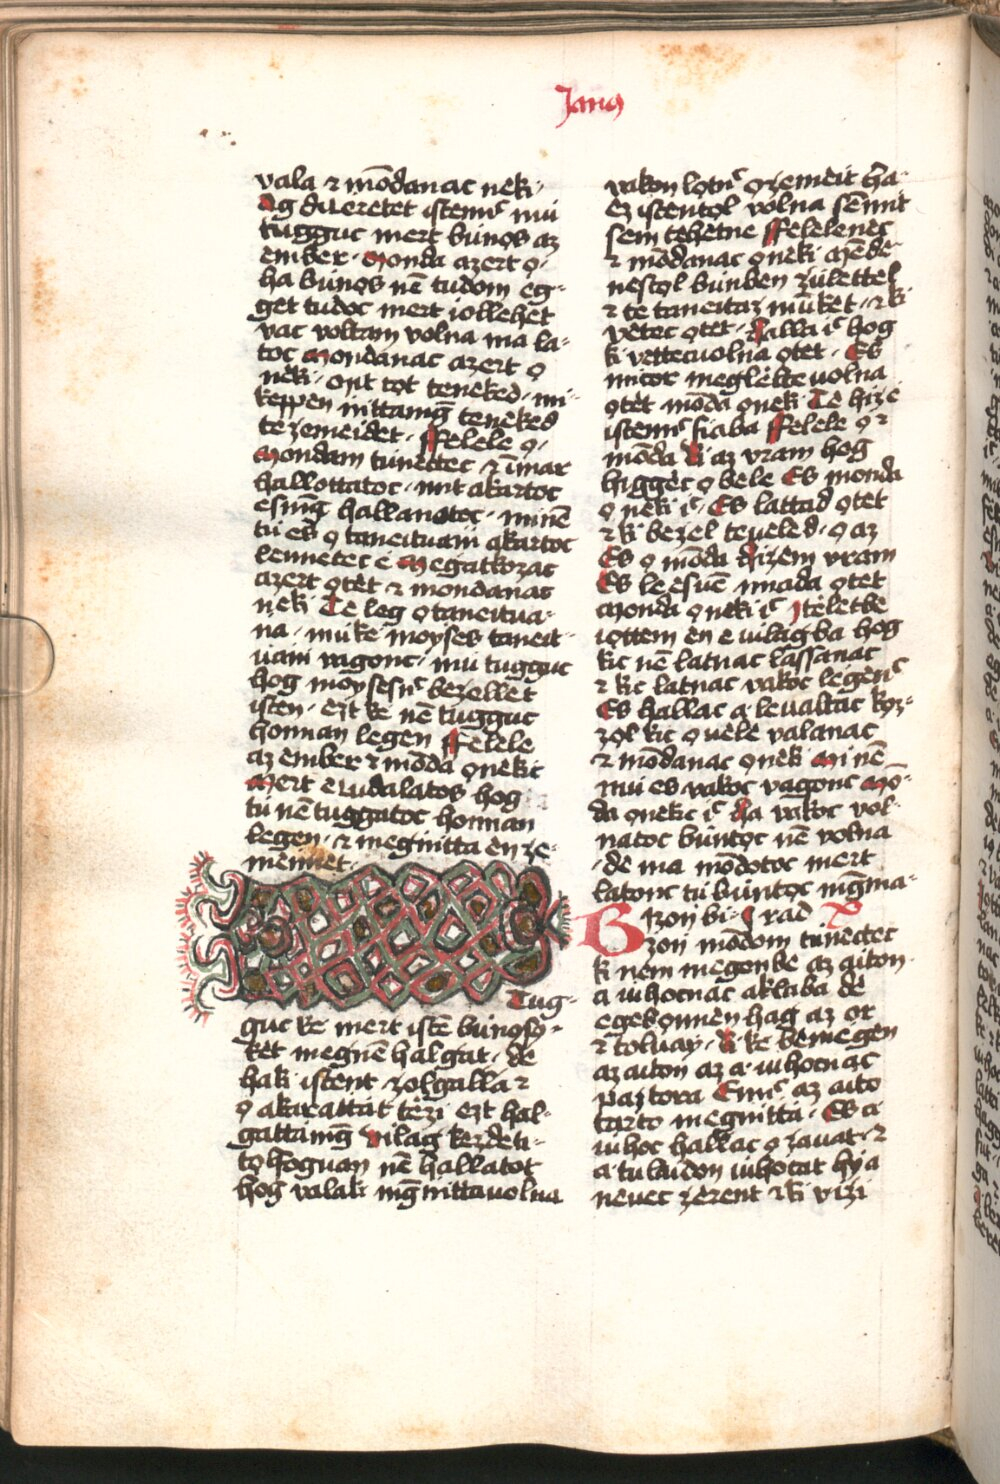 Janꝯ
vala ⁊ mōdanac nėki·
Ag dúeretet istennc̄ mú
tugguc mert búnǫs az
ėmber· Monda azert ǫ·
ha búnǫs nē tudom eg-
get tudoc mert iollehėt
vac voltam volna ma la-
toc Mondanac azert ǫ
nėki· Mit tot tenėked· mi-
keppen ńittamḡ tenėked
te zemeidet· Felele ǫ·
Mondam túnectec ⁊ īmar
hallottatoc· mit akartoc
esmḡ hallanotoc· minē
tú ės ǫ taneituańi akartoc
lennetec è Megatkozac
azert ǫtėt ⁊ mondanac
nėki Te leg ǫ taneitua-
ńa· mú ke moyses taneit-
uańi vagonc· mú tugguc
hog moysesnc̄ bezellet
isten· ezt ke nē tugguc
honnan legen Felele
az ember ⁊ mōda ǫnekic
Mert e čudalatos hog
tú nē tuggatoc honnan
legen· ⁊ megńitta èn ze-
mėmet·
Tug-
guc ke mert istē búnǫsǫ-
ket megnē halgat· de
ha ki istent zolgalla ⁊
ǫ akarattat tèzi ezt hal-
gattamḡ Vilag kezdeti-
tǫ hoguan nē hallatot
hog valaki mḡńittauolna
vakon lotnc̄ ǫ zemeit Ha
ez istentǫl volna sēmit
sem tehetne Felelenėc
⁊ mōdanac ǫneki Mēde-
nestǫl búnben zúlettel
⁊ te taneitaz múnket· ⁊ ki
vetec ǫtet· Halla ic̄ hog
ki vettecuolna ǫtet· Es
micor meglelteuolna
ǫtet mōda ǫneki Te hize
istennc̄ fiaba Felele ǫ ⁊
mōda Ki az vram hog
higgec ǫ bele Es monda
ǫ neki ic̄· Es lattad ǫtet
⁊ ki bezel teueled· ǫ az
Es ǫ mōda Hizem vram
Es leesuē imada ǫtet
Monda ǫneki ic̄ Iteletbe
iǫttem èn e vilagba hog
kic nē latnac lassanac
⁊ kic latnac vakoc legenc̄
Es hallac a leualtac kǫz-
zol kic ǫ uele valanac
⁊ mōdanac ǫneki Minē
mú es vakoc vagonc Mō-
da ǫnekic ic̄ Ha vakoc vol-
natoc búntǫc nē volna
·de ma mōdotoc mert
latonc tú búntǫc mḡma-
Bizon bi- rad X
zon mōdom túnectec
ki nem megen be az aiton·
a iuhocnac aklaba de
egebǫnnen hag az or
⁊ toluay· Ki ke bemegen
az aiton az a iuhocnac
paztora Ennc̄ az aito
tarto megńitta· Es a
iuhoc hallac ǫ zauat· ⁊
a tulaidon iuhocat hýa
neuec zerent ⁊ ki vizi